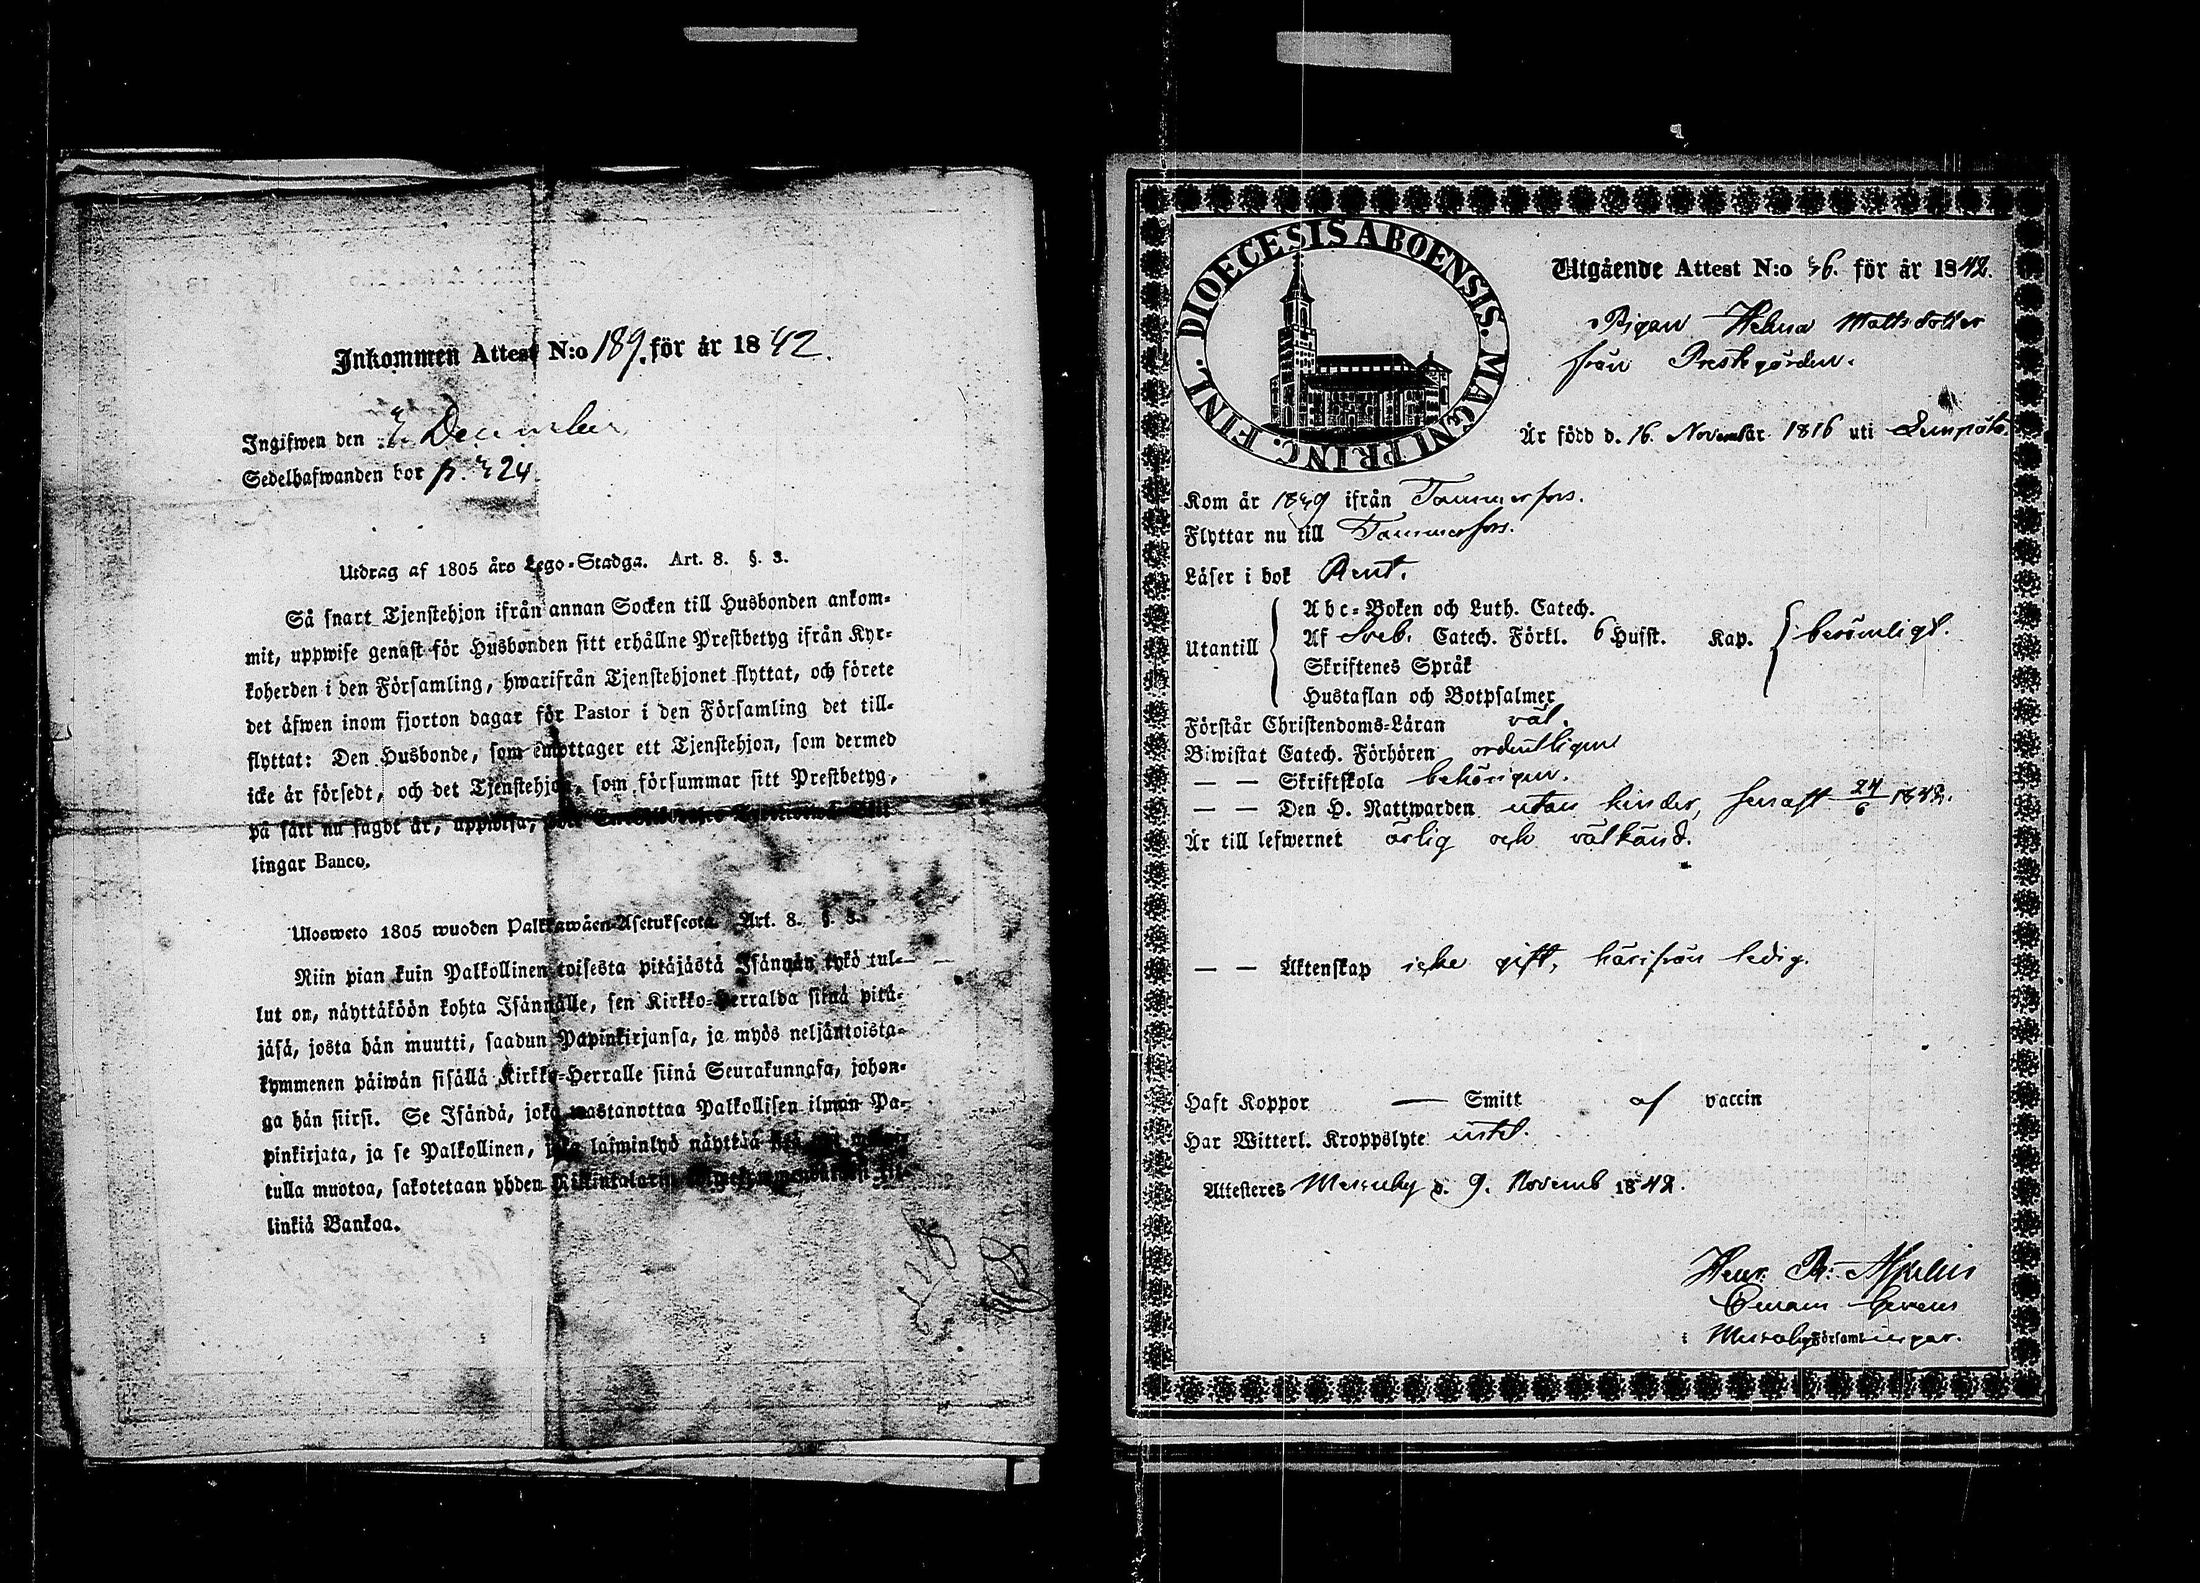 Inkommen Attest N:o 189. för år 1842.
Ingifwen den December
Sedelhafwanden bor p. 424.
Utdrag af 1805 års Lego-Stadga. Art. 8. §. 3.
Så snart Tjenstehjon ifrån annan Socken till Husbonden ankom-
mit, uppwise genast för Husbonden sitt erhållne Prestbetyg ifrån Kyr-
koherden i den Församling, hwarifrån Tjenstehjonet flyttat, och förete
det äfwen inom fjorton dagar för Pastor i den Församling det till-
flyttat: Den Husbonde, som emottager ett Tjenstehjon, som dermed
icke är försedt, och det Tjenstehjon, som försummar sitt Prestbetyg,
på sätt nu sagdt är, uppwisa,
lingar Banco.
Ulosweto 1805 wuoden Palkkawäen-Asetuksesta. Art. 8. §. 3.
Niin pian kuin Palkollinen toisesta pitäjästä Isännän tykö tul-
lut on, näyttäköön kohta Isännälle, sen Kirkko-Herralda siinä pitä-
jäsä, josta hän muutti, saadun Papinkirjansa, ja myös neljäntoista-
kymmenen päiwän sisällä Kirkko-Herralle siinä Seurakunnasa, johon-
ga hän siirsi. Se Isändä, joka wastanottaa Palkollisen ilman Pa-
pinkirjata, ja se Palkollinen, joka laiminlyö näyttää
tulla muotoa, sakotetaan yhden
linkiä Bankoa.
DIOECESIS ABOENSIS. MAGNI PRINC. FINL.
Utgående Attest N:o 46. för år 1842.
Pigan Helena Mattsdotter
från Prestgården.
Är född d. 16. November 1816 uti Lempäälä.
Kom år 1839 ifrån Tammerfors.
Flyttar nu till Tammerfors.
Läser i bok Rent.
Utantill
Abc-Boken och Luth. Catech.
Af Sveb. Catech. Förkl. 6 Hufst. Kap. berömligt.
Skriftenes Språk
Hustaflan och Botpsalmer
Förstår Christendoms-Läran väl.
Biwistat Catech. Förhören ordentligen
— — Skriftskola behörigen.
— — Den H. Nattwarden utan hinder, senast 24/6 1842.
Är till lefwernet ärlig och välkänd.
— — Äktenskap icke gift, härifrån ledig.
Haft Koppor — Smitt af vaccin
Har Witterl. Kroppslyte intet.
Attesteras Messuby d. 9. Novemb 1842.
Henr. R:
i Messuby Församling